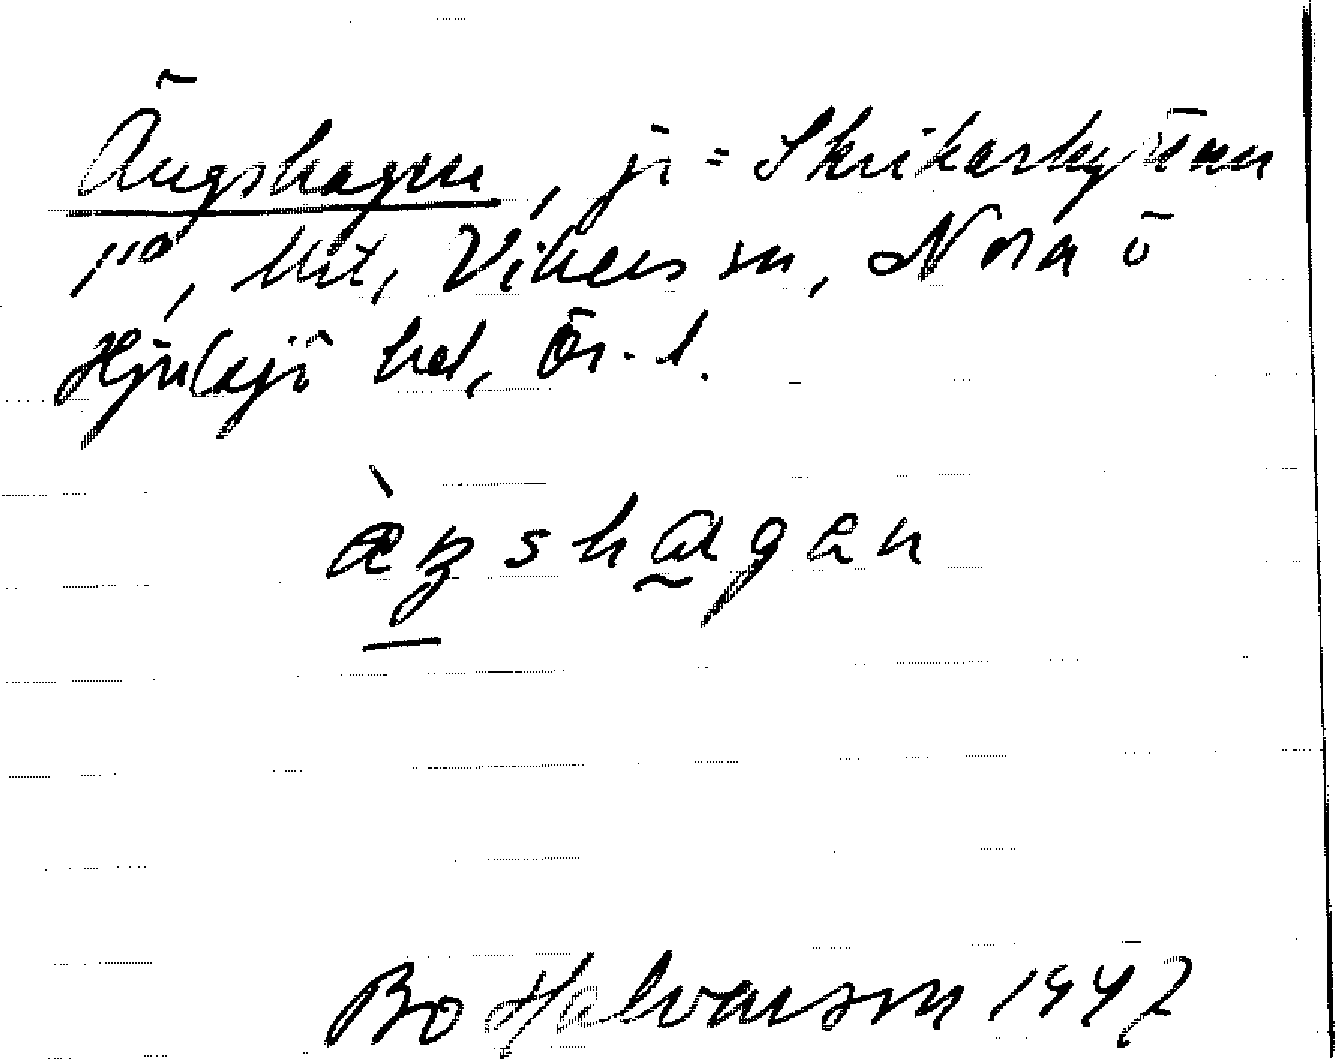 Ängshagen, jr = Skrikarhyttan
1⁴⁰, lht, Vikers sn, Nora ö
Hjulsjö hd, Ör. l.
æ̀ŋshagen
Bo Halvarson 1947